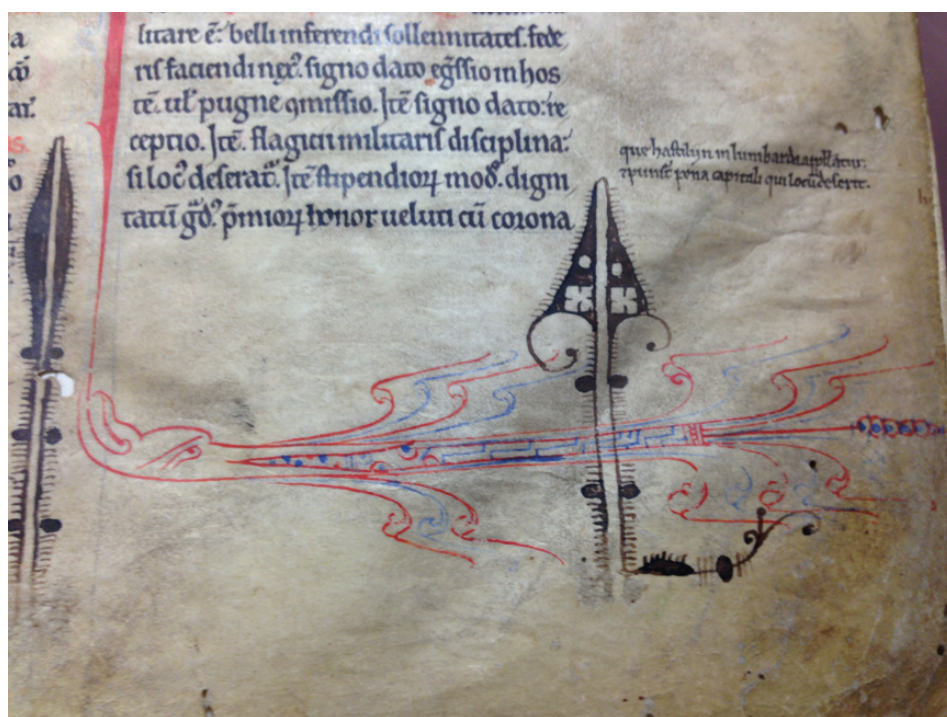 a
litare ē. belli inferendi sollennitates. fede
ris faciendi nex᷒. signo dato eg̃ssio in hos
tē. ul' pugne ꝯmissio. Itē signo dato: re
ar.
ceptio. Itē. flagicii militaris disciplina.
si loc᷒ deserat᷒. Itē stipendioꝝ mod᷒. digni
o
tatū gͣd᷒. p̄mioꝝ honor ueluti cū corona
que hastilijn in lumbardia
pena capitali qui locū deserit.